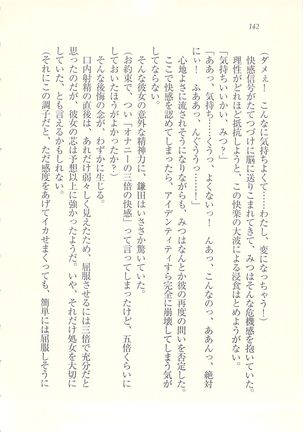 142
(ダメぇ！　こんなに気持ちよくて……わたし、変になっちゃう！)
快感信号がたてつづけに脳に送りこまれてきて、みつはそんな危機感を抱いていた。
理性がどれほど抵抗しようと、この快楽の大波による浸食はとめようがない。
「気持ちいいかい、みつ？」
「ああっ、気持ち……くうっ！　よくないっ！　んあっ、こんなのっ、ああんっ、絶対
にぃ！　ふああっ、くうぐううっ……！」
心地よさに流されそうになりながらも、みつはなんとか彼の再度の問いを否定した。
ここで快感を認めてしまったら、アイデンティティすら完全に崩壊してしまう気が
する。
そんな彼女の意外な精神力に、鎌田はいささか驚いていた。
(お約束で、つい『オナニーの三倍の快感』って言ってしまったけど、五倍くらいに
しておいたほうがよかったか？)
そんな後悔の念が、わずかに生じる。
口内射精の直後は、あれだけ弱々しく見えたため、屈服させるには三倍で充分だと
思ったのだが、彼女の芯は予想以上に強かったようだ。いや、それだけ処女を大切に
していた、とも言えるかもしれない。
(それにこの調子だと、ただ感度をあげてイカせまくっても、簡単には屈服しそうに